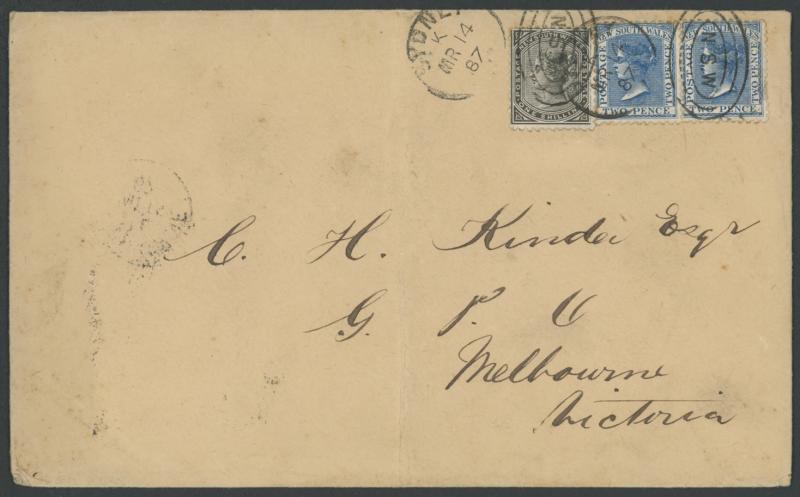 SYDNEY
K
MR 14
87
POSTAGE NEW SOUTH WALES
ONE SHILLING
POSTAGE NEW SOUTH WALES
TWO PENCE TWO PENCE
N.S.W
POSTAGE NEW SOUTH WALES
TWO PENCE TWO PENCE
C. H. Kinder Esqr
G. P. O
Melbourne
Victoria